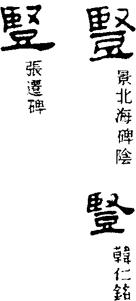 豎
景北海碑陰
豎
韓仁銘
豎
張遷碑